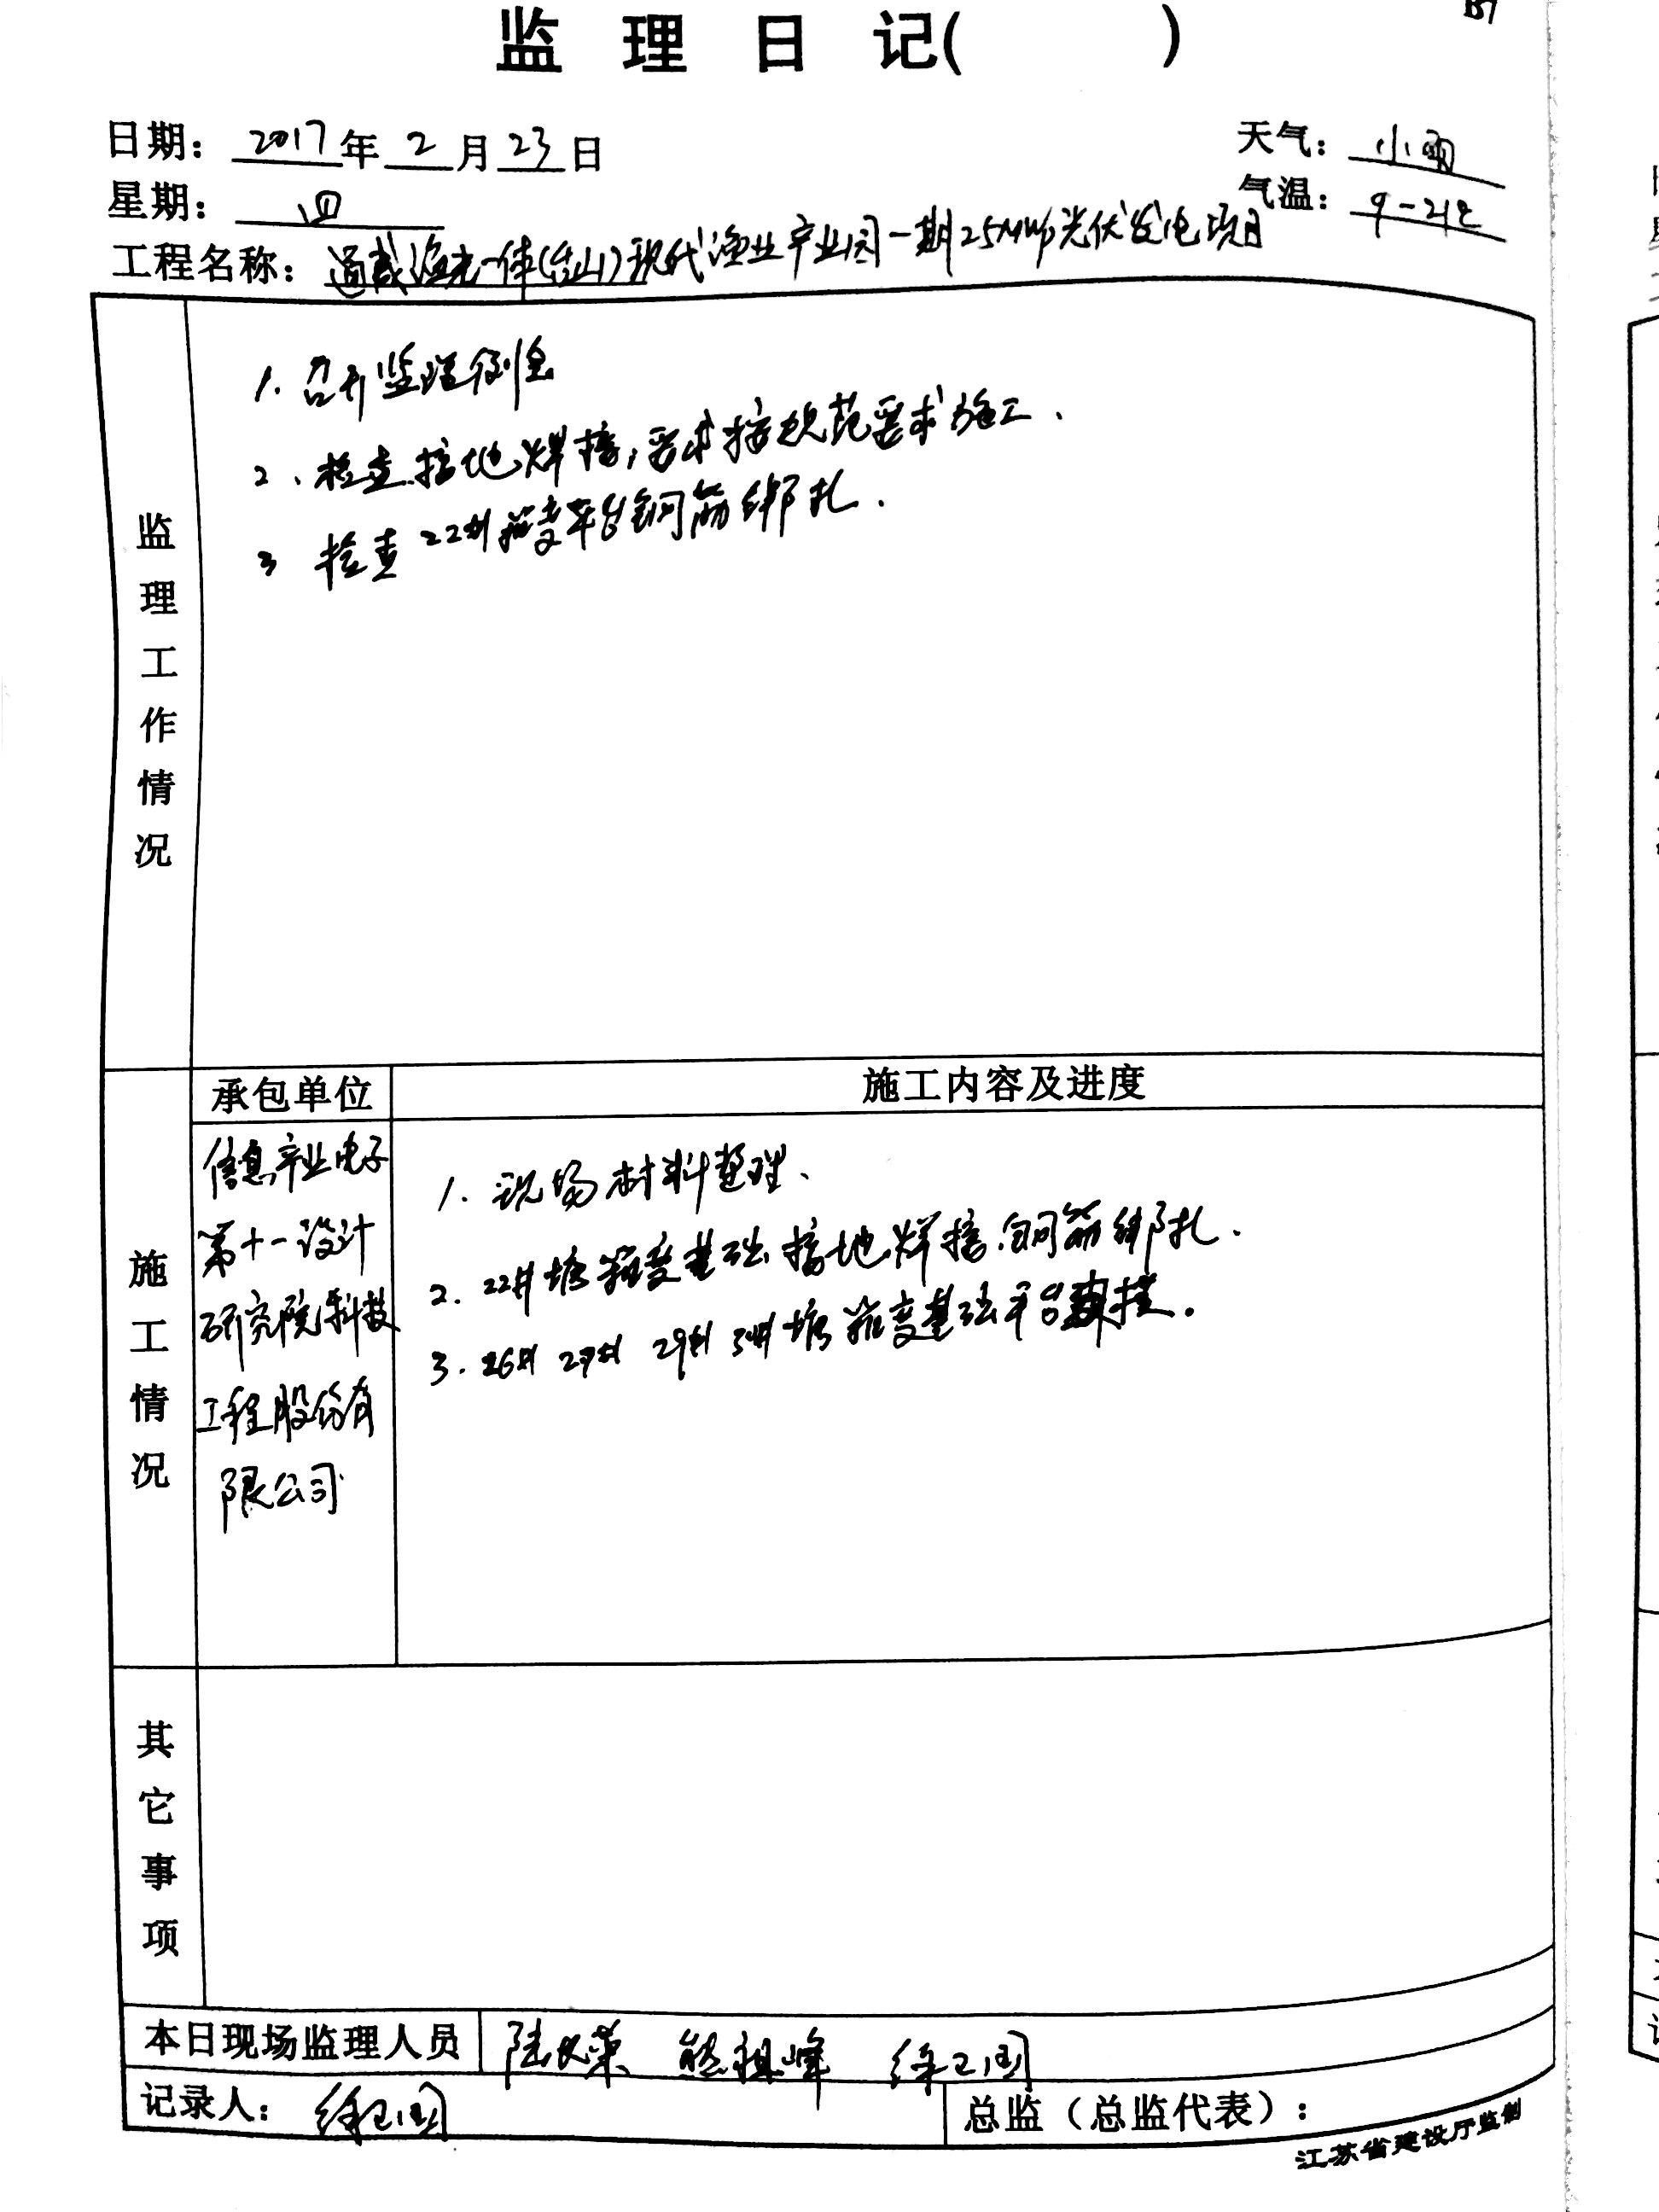 监理日记( )
日期: 2017年2月23日
天气: 小雨
星期: 四
气温: 9-21℃
工程名称: 通威渔光一体(台山)现代渔业产业园一期25MWp光伏发电项目
监理工作情况
1. 召开监理例会
2、检查接地焊接,要求按规范要求施工.
3 检查22#箱变平台钢筋绑扎.
施工情况
承包单位
施工内容及进度
信息产业电子
第十一设计
研究院科技
工程股份有
限公司
1. 现场材料整理、
2. 22#塘箱变基础接地焊接.钢筋绑扎.
3. 26# 27# 29# 34#塘箱变基础平台
其它事项
本日现场监理人员 陆长荣 熊祖峰 徐卫国
记录人: 徐卫国
总监(总监代表):
江苏省建设厅监制